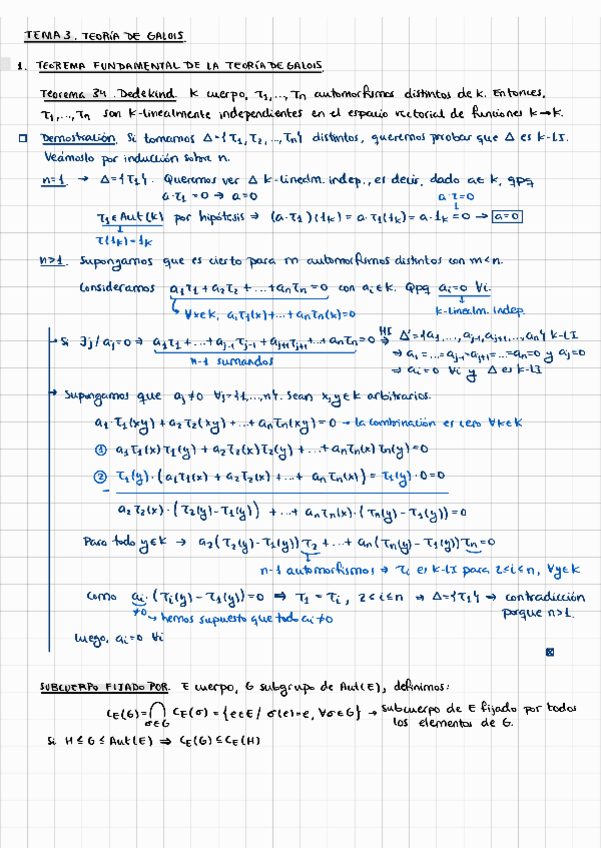 TEMA 3. TEORÍA DE GALOIS
1. TEOREMA FUNDAMENTAL DE LA TEORÍA DE GALOIS
Teorema 34. Dedekind. K cuerpo, τ₁,..., τₙ automorfismos distintos de K. Entonces,
τ₁,..., τₙ son K-linealmente independientes en el espacio vectorial de funciones K→K.
Demostración. Si tomamos Δ={τ₁, τ₂, ..., τₙ} distintos, queremos probar que Δ es K-LI.
Veámoslo por inducción sobre n.
n=1. → Δ={τ₁}. Queremos ver Δ K-linealm. indep., es decir, dado a∈K, qpq
a·τ₁=0 → a=0
a·τ=0
τ₁∈Aut(K) por hipótesis → (a·τ₁)(1ₖ)=a·τ₁(1ₖ)=a·1ₖ=0 → a=0
τ(1ₖ)=1ₖ
n>1. Supongamos que es cierto para m automorfismos distintos con m<n.
Consideramos a₁τ₁+a₂τ₂+...+aₙτₙ=0 con aᵢ∈K. Qpq aᵢ=0 ∀i.
∀x∈K, a₁τ₁(x)+...+aₙτₙ(x)=0
K-linealm. indep.
→ Si ∃j/aⱼ=0 ⇒ a₁τ₁+...+aⱼ₋₁τⱼ₋₁+aⱼ₊₁τⱼ₊₁+...+aₙτₙ=0 HI⇒ Δ'={a₁,...,aⱼ₋₁,aⱼ₊₁,...,aₙ} K-LI
n-1 sumandos
⇒ a₁=...=aⱼ₋₁=aⱼ₊₁=...=aₙ=0 y aⱼ=0
⇒ aᵢ=0 ∀i y Δ es K-LI
→ Supongamos que aⱼ≠0 ∀j={1,...,n}. Sean x,y∈K arbitrarios.
a₁τ₁(xy)+a₂τ₂(xy)+...+aₙτₙ(xy)=0 → la combinación es cero ∀k∈K
① a₁τ₁(x)τ₁(y)+a₂τ₂(x)τ₂(y)+...+aₙτₙ(x)τₙ(y)=0
② τ₁(y)·(a₁τ₁(x)+a₂τ₂(x)+...+aₙτₙ(x))=τ₁(y)·0=0
a₂τ₂(x)·(τ₂(y)-τ₁(y))+...+aₙτₙ(x)·(τₙ(y)-τ₁(y))=0
Para todo y∈K → a₂(τ₂(y)-τ₁(y))τ₂+...+aₙ(τₙ(y)-τ₁(y))τₙ=0
n-1 automorfismos → τᵢ es K-LI para 2≤i≤n, ∀y∈K
Como aᵢ·(τᵢ(y)-τ₁(y))=0 ⇒ τ₁=τᵢ, 2≤i≤n → Δ={τ₁} → contradicción
≠0 → hemos supuesto que todo aᵢ≠0
porque n>1.
Luego, aᵢ=0 ∀i
SUBCUERPO FIJADO POR. E cuerpo, G subgrupo de Aut(E), definimos:
C_E(G)=⋂_{σ∈G} C_E(σ)={e∈E/σ(e)=e, ∀σ∈G} → subcuerpo de E fijado por todos
los elementos de G.
Si H≤G≤Aut(E) ⇒ C_E(G)≤C_E(H)